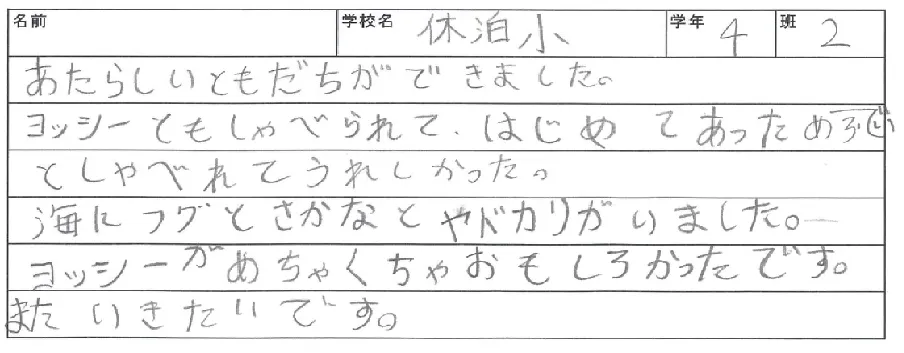 名前 学校名 休泊小 学年 4 班 2
あたらしいともだちができました。
ヨッシーともしゃべられて、はじめてあっため
としゃべれてうれしかった。
海にフグとさかなとヤドカリがいました。
ヨッシーがめちゃくちゃおもしろかったです。
またいきたいです。